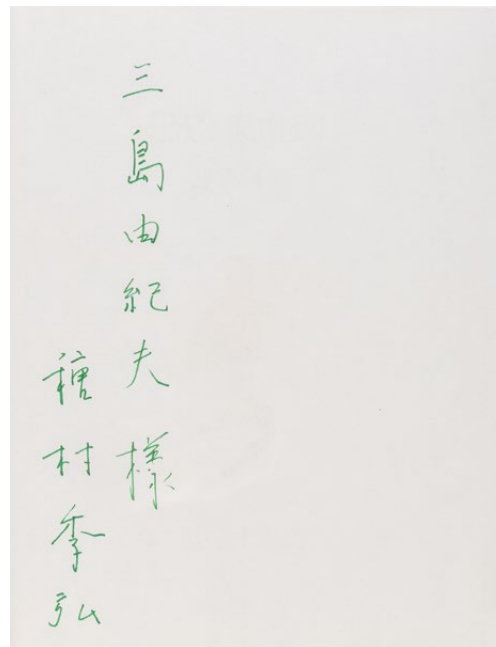 三島由紀夫様
種村季弘